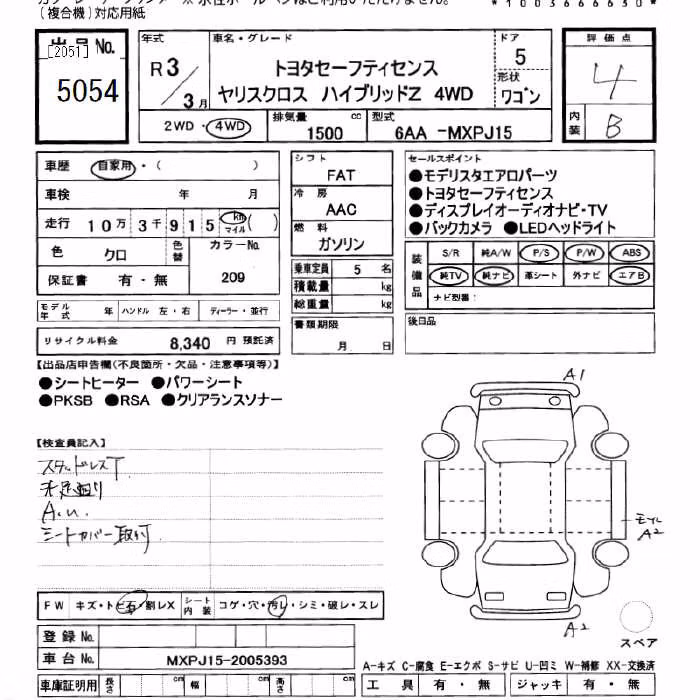 (複合機)対応用紙
*1003666630*
出品No.
[2051]
5054
年式 車名・グレード ドア 評価点
R3/3月 トヨタセーフティセンス 5 4
ヤリスクロス ハイブリッドZ 4WD 形状 ワゴン
2WD・4WD 排気量 1500 cc 型式 6AA -MXPJ15 内装 B
車歴 自家用・( )
車検 年 月
走行 10万3千915 km マイル ( )
色 クロ 色替 カラーNo. 209
保証書 有・無
モデル年式 年 ハンドル 左・右 ディーラー・並行
リサイクル料金 8,340 円 預託済
シフト FAT
冷房 AAC
燃料 ガソリン
乗車定員 5 名
積載量 kg
総重量 kg
書類期限 月 日
セールスポイント
●モデリスタエアロパーツ
●トヨタセーフティセンス
●ディスプレイオーディオナビ・TV
●バックカメラ ●LEDヘッドライト
装備品 S/R 純A/W P/S P/W ABS
純TV 純ナビ 革シート 外ナビ エアB
ナビ型番:
後日品
【出品店申告欄(不良箇所・欠品・注意事項等)】
●シートヒーター ●パワーシート
●PKSB ●RSA ●クリアランスソナー
【検査員記入】
スタッドレスT
A.u
シートカバー取付
A1
モール A2
A2
スペア
FW キズ・トビ石・割レX シート内装 コゲ・穴・汚レ・シミ・破レ・スレ
登録No.
車台No. MXPJ15-2005393
車庫証明用 長さ cm 幅 cm 高さ cm
A-キズ C-腐食 E-エクボ S-サビ U-凹ミ W-補修 XX-交換済
工具 有・無 ジャッキ 有・無